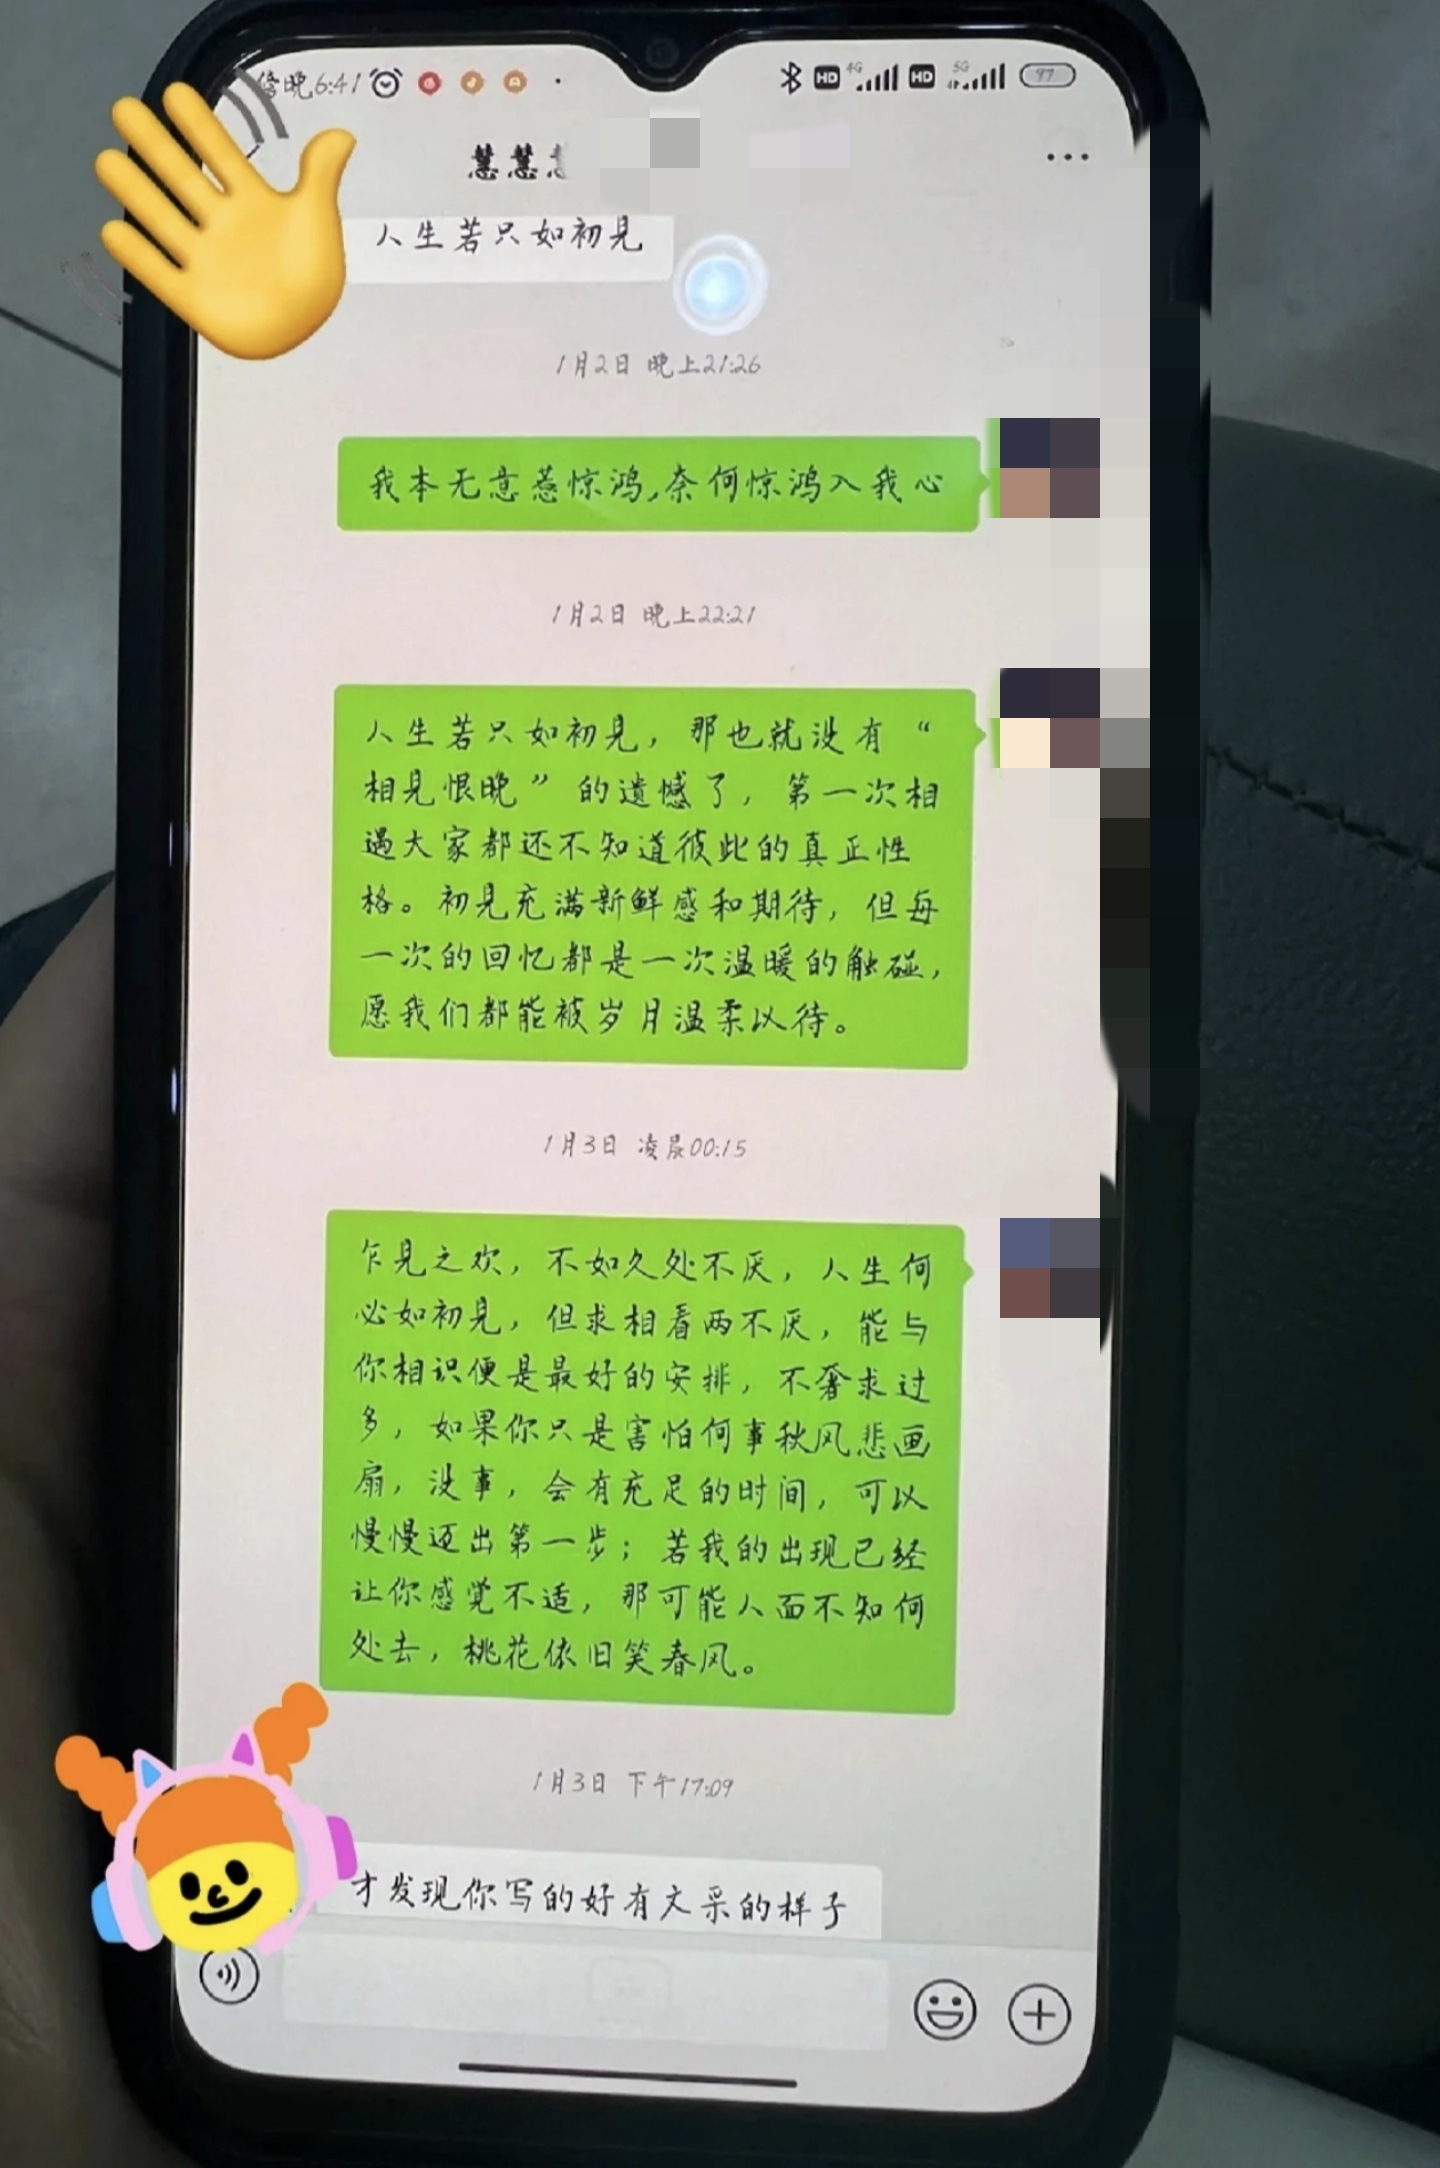 傍晚6:41
HD 4G HD 5G 97
慧慧
人生若只如初见
1月2日 晚上21:26
我本无意惹惊鸿,奈何惊鸿入我心
1月2日 晚上22:21
人生若只如初见，那也就没有“
相见恨晚”的遗憾了，第一次相
遇大家都还不知道彼此的真正性
格。初见充满新鲜感和期待，但每
一次的回忆都是一次温暖的触碰，
愿我们都能被岁月温柔以待。
1月3日 凌晨00:15
乍见之欢，不如久处不厌，人生何
必如初见，但求相看两不厌，能与
你相识便是最好的安排，不奢求过
多，如果你只是害怕何事秋风悲画
扇，没事，会有充足的时间，可以
慢慢迈出第一步；若我的出现已经
让你感觉不适，那可能人面不知何
处去，桃花依旧笑春风。
1月3日 下午17:09
才发现你写的好有文采的样子